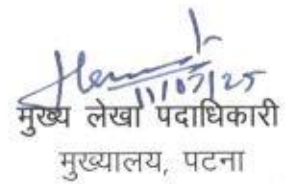 11/07/25
मुख्य लेखा पदाधिकारी
मुख्यालय, पटना